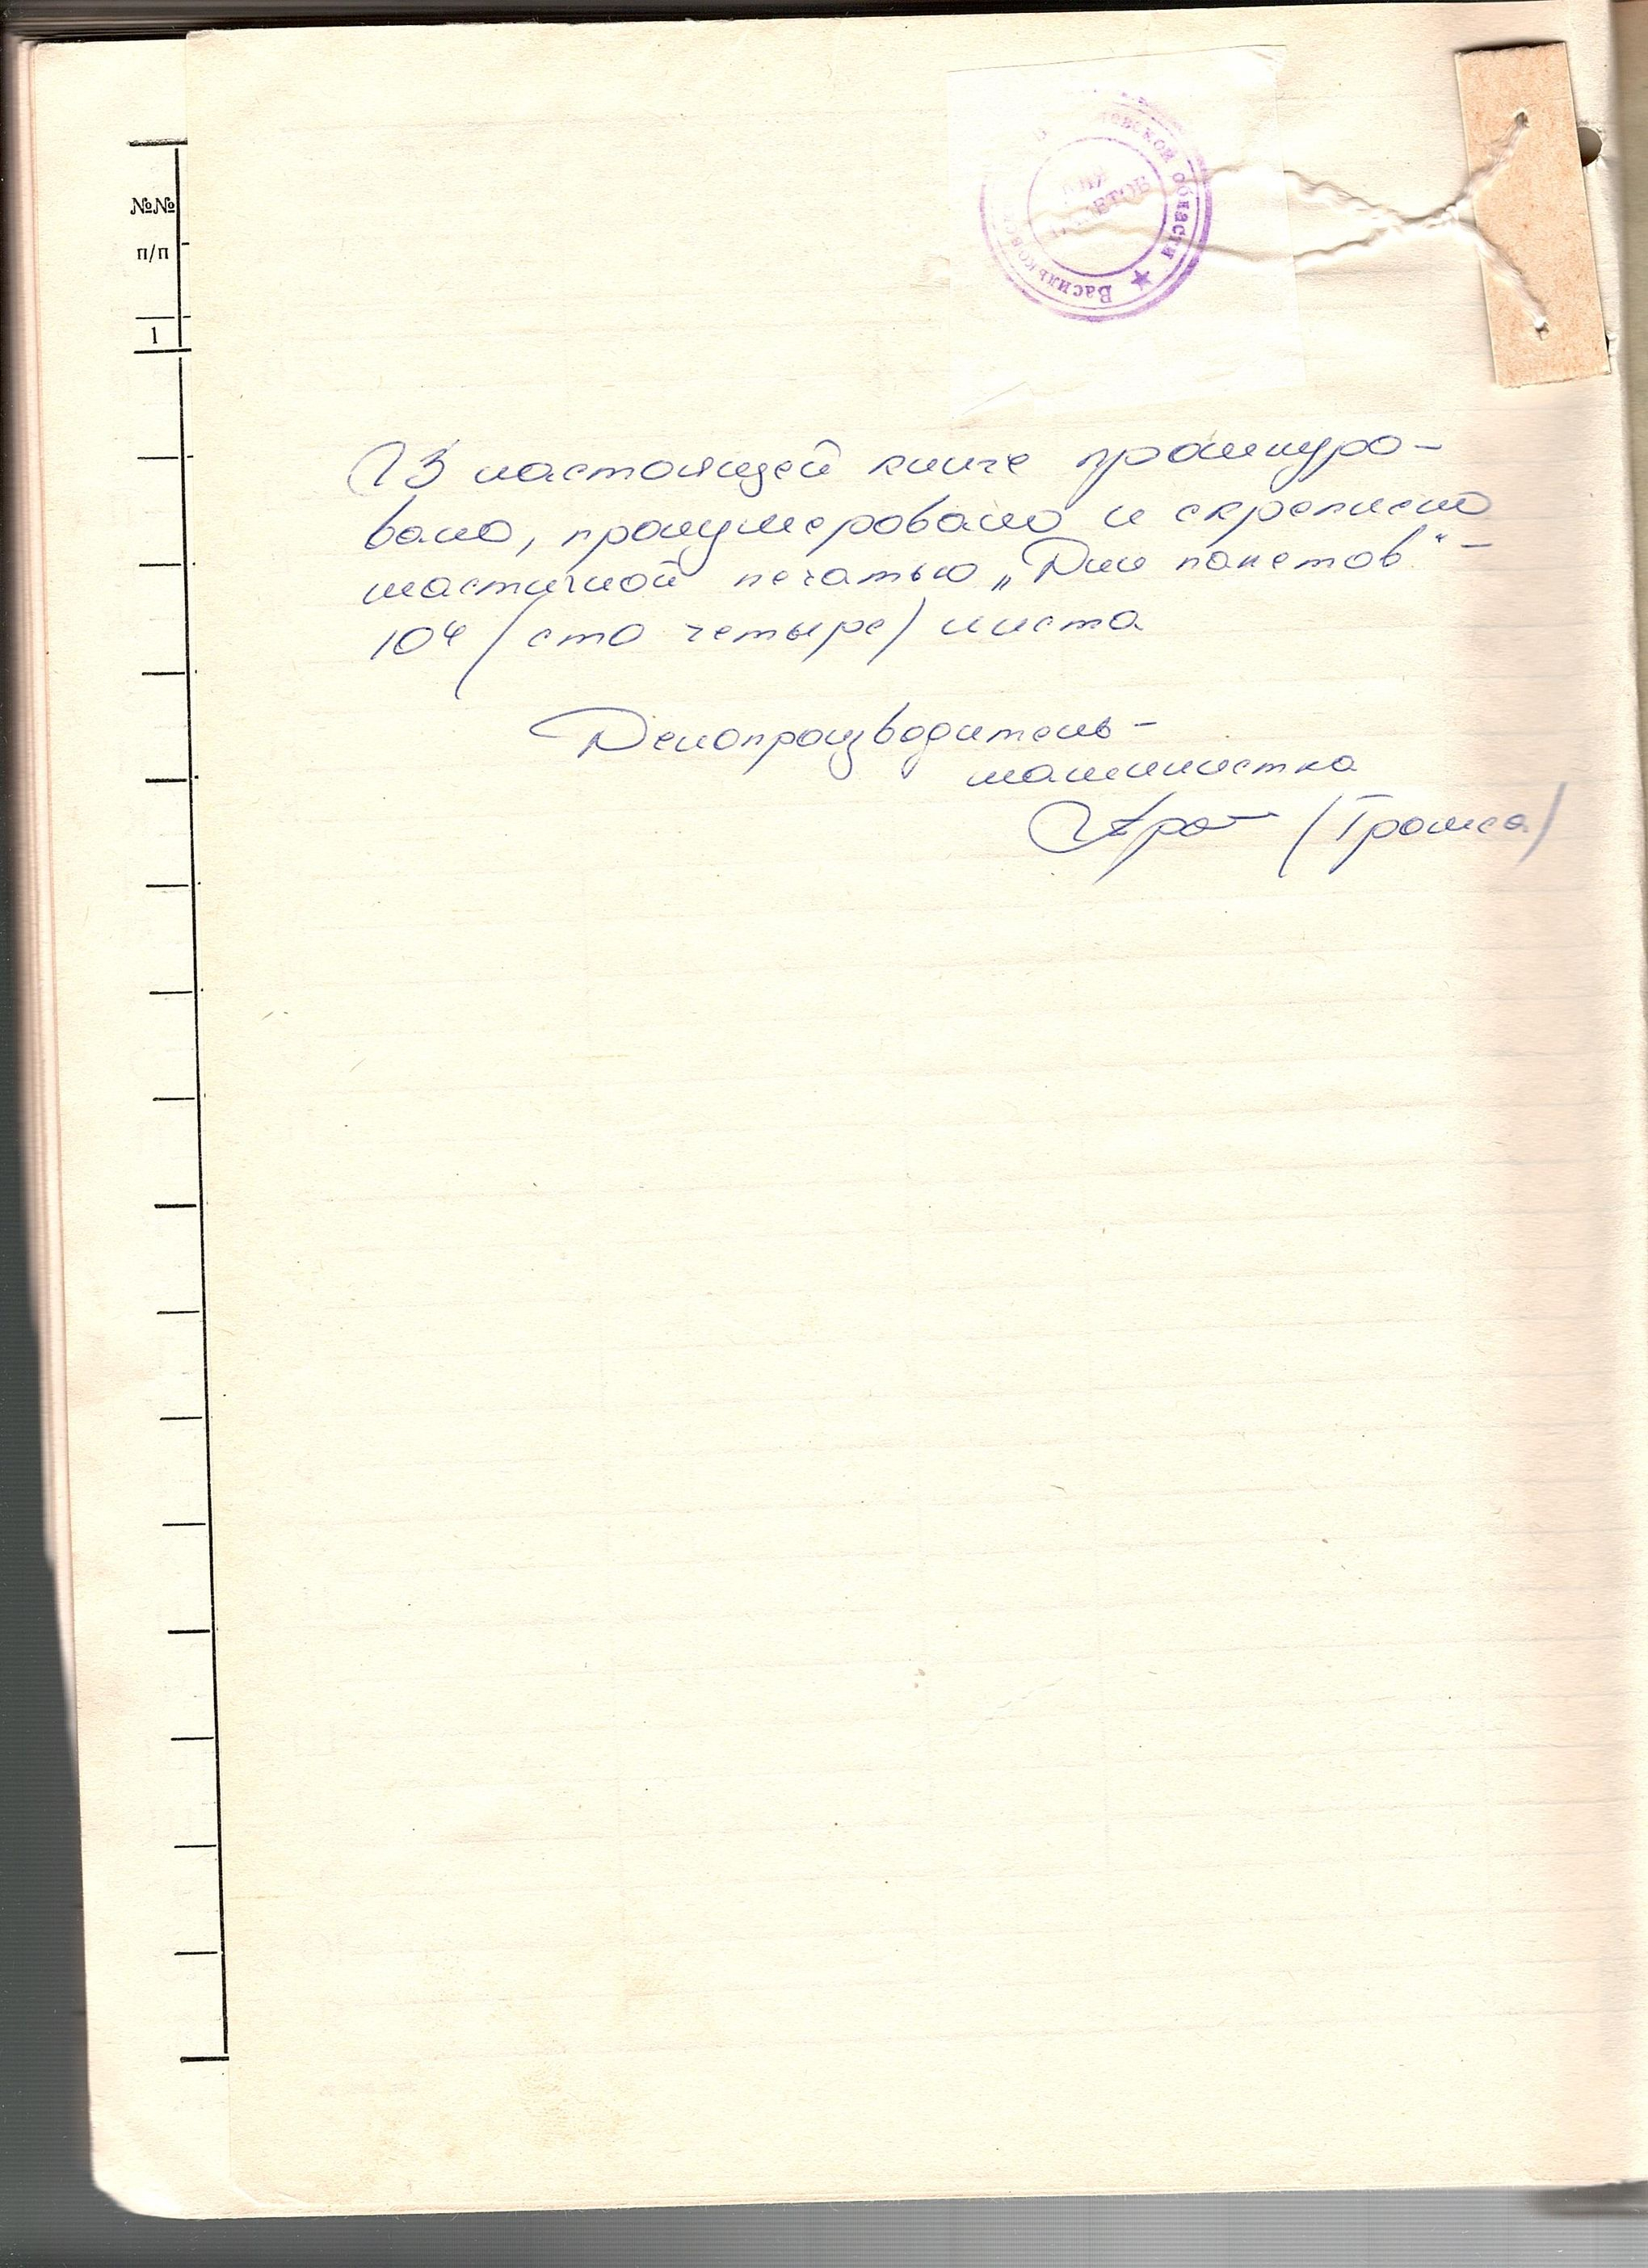 №№
п/п
1
овской области ★ Васильковс
ДЛЯ
ПАКЕТОВ
В настоящей книге прошнуро-
вано, пронумеровано и скреплено
мастичной печатью „Для пакетов“ –
104 (сто четыре) листа
Делопроизводитель-
машинистка